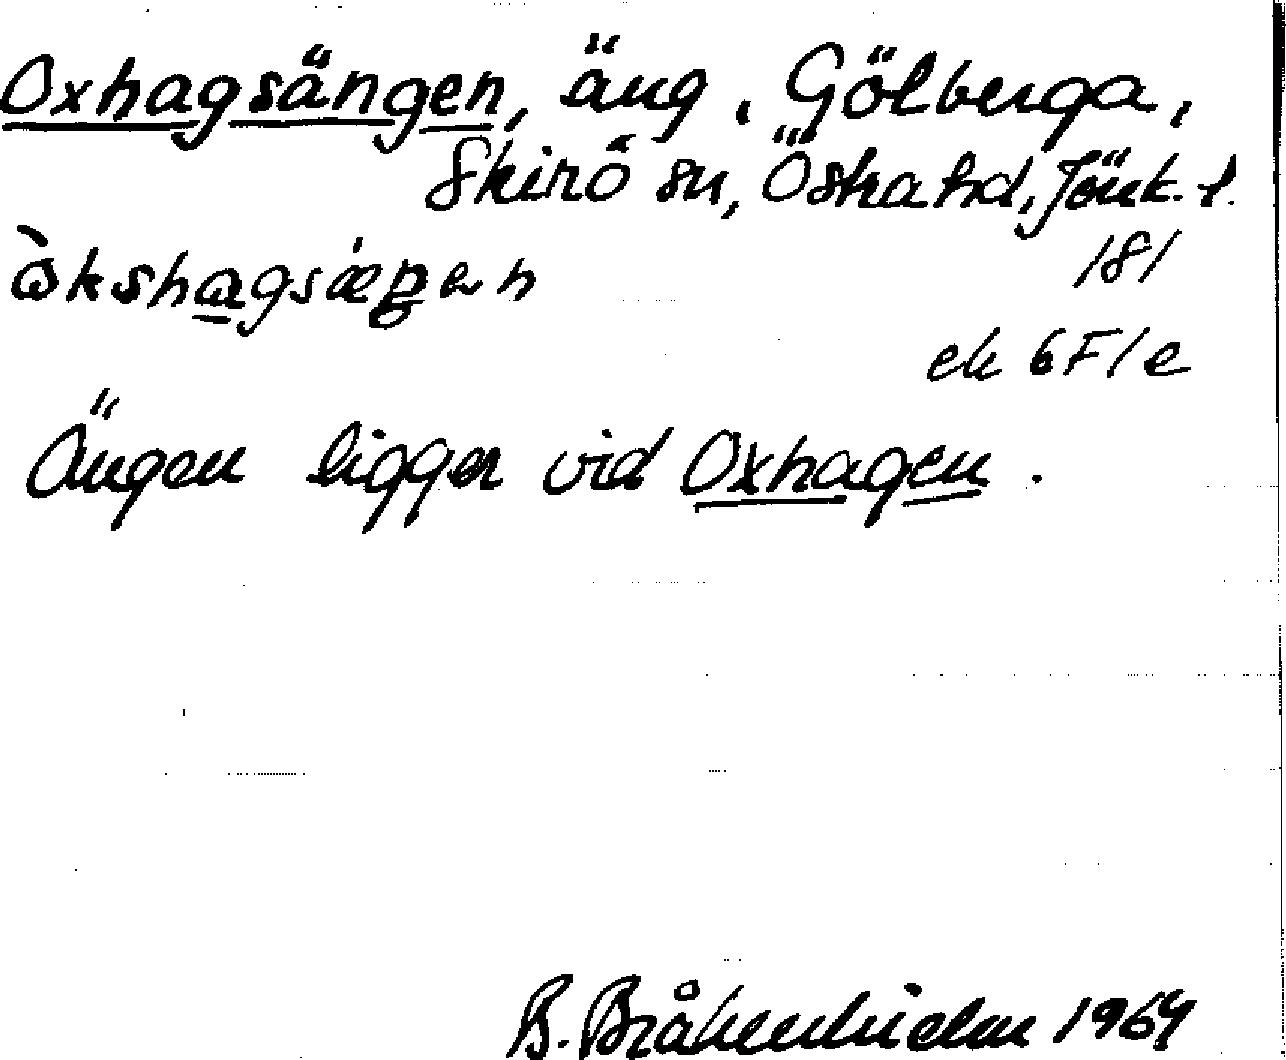 Oxhagsängen, äng, Gölberga,
Skirö sn, Östra hd, Jönk. l.
181
ek 6F1e
Ängen ligger vid Oxhagen.
B. 1964